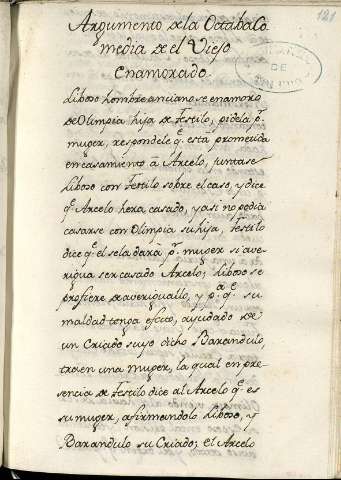 121
Argumento de la Octaba Co
media de el Viejo
Enamorado.
Liboso hombre anciano se enamoro
de Olimpia hija de Festilo, pidela p.r
muger, respondele q.e està prometida
en casamiento â Arcelo, juntase
Liboso con Festilo sobre el caso, y dice
q.e Arcelo hera casado, y asi no podia
casarse con Olimpia su hija, Festilo
dice q.e el se la darà p.r muger si ave-
rigua ser casado Arcelo; Liboso se
profiere de averiguallo, y p.a q.e su
maldad tenga efecto, ayudado de
un Criado suyo dicho Barandulo,
traen una muger, la qual en pre-
sencia de Festilo dice al Arcelo q.e es
su muger, afirmandolo Liboso, y
Barandulo su Criado; el Arcelo